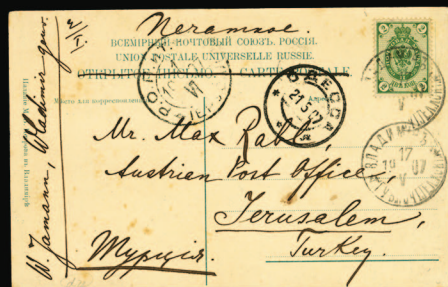 Печатное.
ВСЕМІРНЫЙ ПОЧТОВЫЙ СОЮЗЪ. РОССІЯ.
UNION POSTALE UNIVERSELLE RUSSIE.
ОТКРЫТОЕ ПИСЬМО. — CARTE POSTALE
Мѣсто для корреспонденціи
ОДЕССА
21 5
Mr. Max
Austrian Post Office,
Jerusalem,
Turkey.
Турція.
W. Jamann, Wladimir gouv.
17
19 07
V